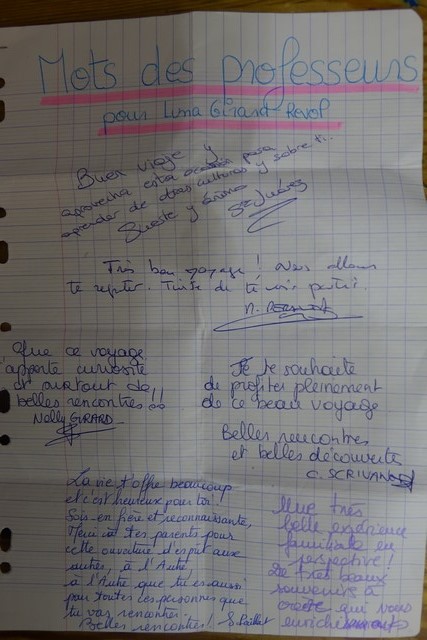 Mots des professeurs
pour Luna Girard Revol
Buen viaje y
aprovecha esta ocasión para
aprender de otras culturas y sobre ti.
Suerte y ánimo
Sr Juárez
Très bon voyage ! Nous allons
te regretter. Triste de te voir partir.
Que ce voyage
t'apporte curiosité
et surtout de
belles rencontres !!
Nelly GIRARD
Je te souhaite
de profiter pleinement
de ce beau voyage
Belles rencontres
et belles découvertes
C. SCRIVANO
La vie t'offre beaucoup
et c'est heureux pour toi !
Sois-en fière et reconnaissante,
Merci à tes parents pour
cette ouverture d'esprit aux
autres, à l'Autre,
à l'Autre que tu es aussi
pour toutes les personnes que
tu vas rencontrer.
Belles rencontres !
Une très
belle expérience
familiale en
perspective !
De très beaux
souvenirs à
créer qui vous
enrichiront